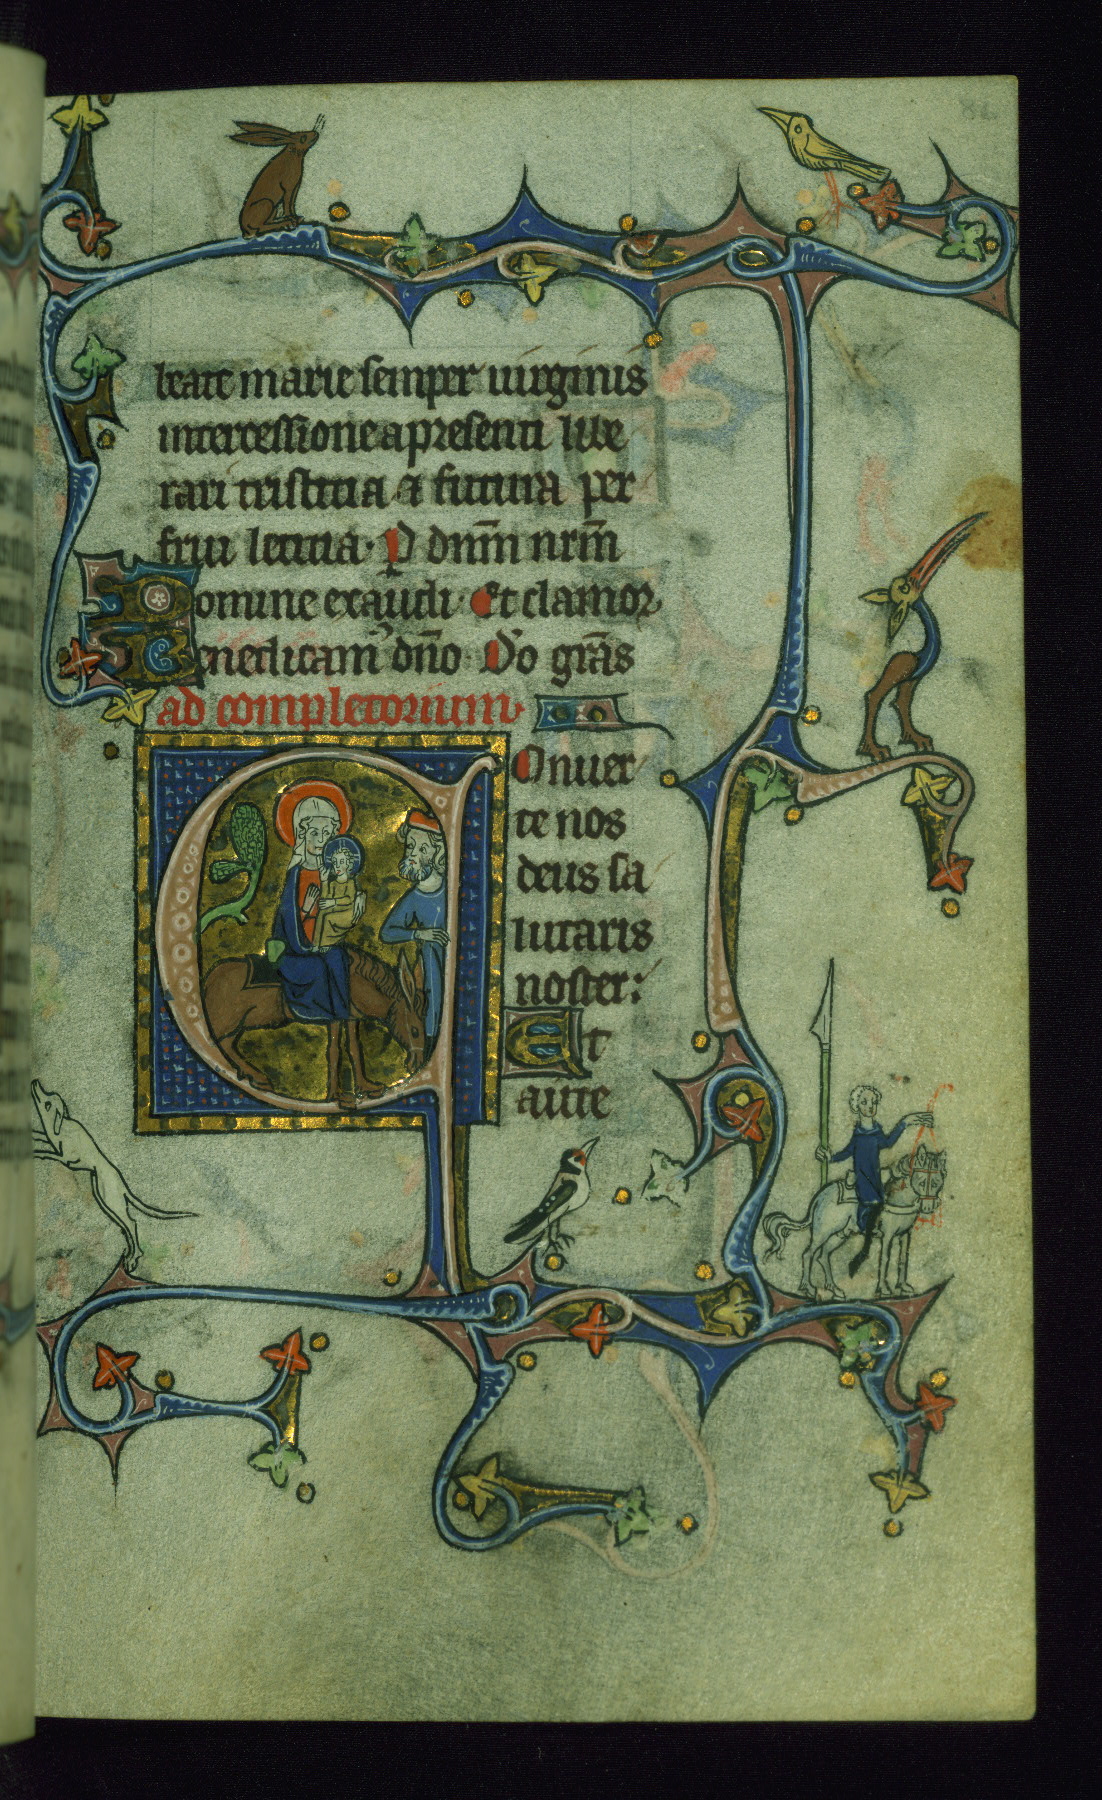 82
beate marie semper uirginis
intercessione a presenti libe
rari tristitia & futura per
frui letitia. P dnm̄ nrm̄
Domine exaudi. Et clamor
Benedicam dn̄o. Do grās
ad completorium
Onuer
te nos
deus sa
lutaris
noster:
Et
auite